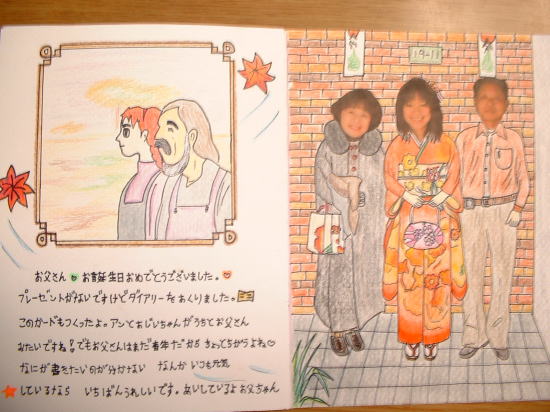 19-11
お父さん お誕生日おめでとうございました。
プレーゼントがないですけどダイアリーをおくりました。
このカードもつくったよ。アンとおじいちゃんがうちとお父さん
みたいですね!でもお父さんはまだ青年だからちょっとちがうよね
なにが書きたいのが分かない なんか いつも元気
しているなら いちばんうれしいです。あいしているよお父ちゃん